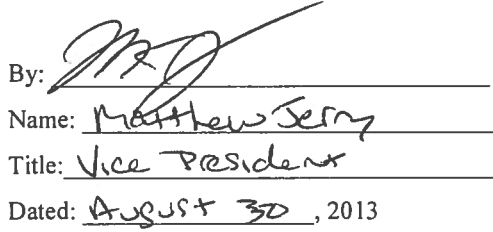 By:
Name: Matthew Jerry
Title: Vice President
Dated: August 30, 2013